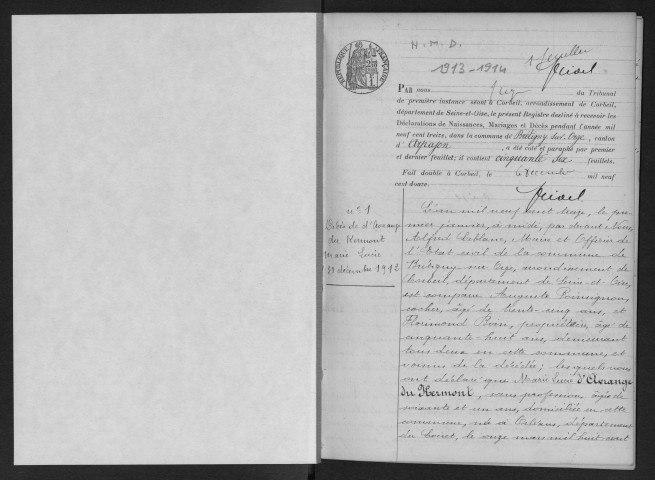 N. M. D.
1913-1914
1er feuillet
RÉPUBLIQUE FRANÇAISE
PAR nous Juge du Tribunal
de première instance séant à Corbeil, arrondissement de Corbeil,
département de Seine-et-Oise, le présent Registre destiné à recevoir les
Déclarations de Naissances, Mariages et Décès pendant l'année mil
neuf cent treize, dans la commune de Brétigny sur Orge, canton
d'Arpajon, a été coté et paraphé par premier
et dernier feuillet; il contient cinquante six feuillets.
Fait double à Corbeil, le 6 décembre mil neuf
cent douze.
n° 1
Décès de d'Avrange
du Kermont
Marie Lucie
31 décembre 1912
L'an mil neuf cent treize, le pre-
mier janvier, à midi, par devant Nous,
Alfred Leblanc, Maire et Officier de
l'Etat civil de la commune de
Brétigny-sur-Orge, arrondissement de
Corbeil, département de Seine-et-Oise,
est comparu Auguste
cocher, âgé de trente-cinq ans, et
Florimond, propriétaire, âgé de
cinquante-huit ans, demeurant
tous deux en cette commune, et
voisins de la décédée; lesquels nous
ont déclaré que Marie Lucie d'Avrange
du Kermont, sans profession, âgée de
soixante et un ans, domiciliée en cette
commune, née à Orléans, département
du Loiret, le onze mars mil huit cent